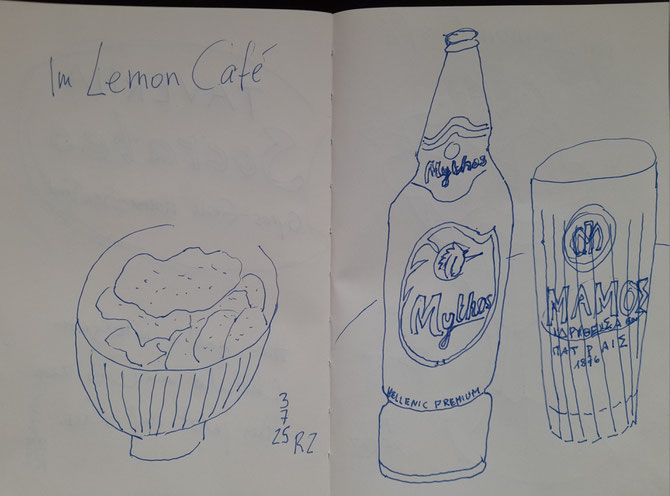 Im Lemon Café
3
7
25 RZ
Mythos
Mythos
HELLENIC PREMIUM
M
ΜΑΜΟΣ
ΙΔΡΥΘΕΙΣΑ ΕΝ
ΠΑΤΡΑΙΣ
1876